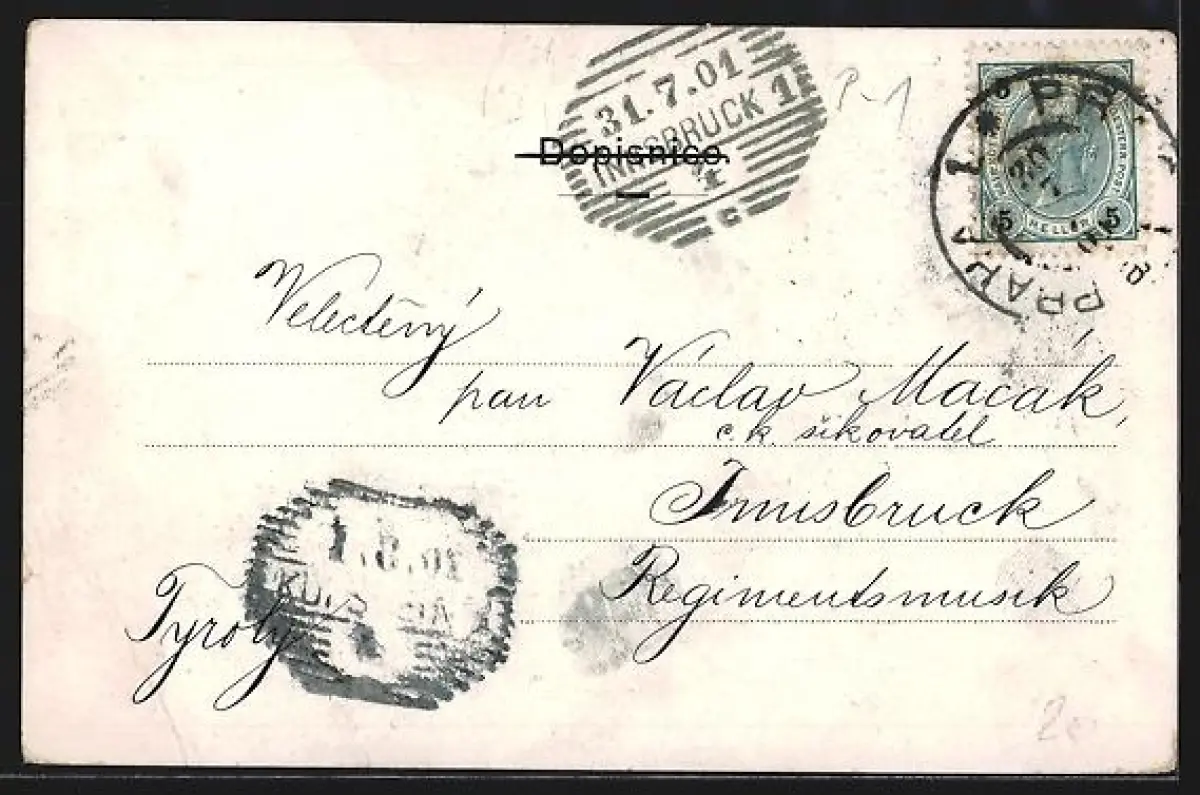 31.7.01
INNSBRUCK 1
Dopisnice.
C
P-1
PRAHA 1
30
5 HELLER 5
Velectěný
pan Václav Macák,
c. k. šikovatel
Innsbruck
Regimentsmusik
Tyroly
1.8.01